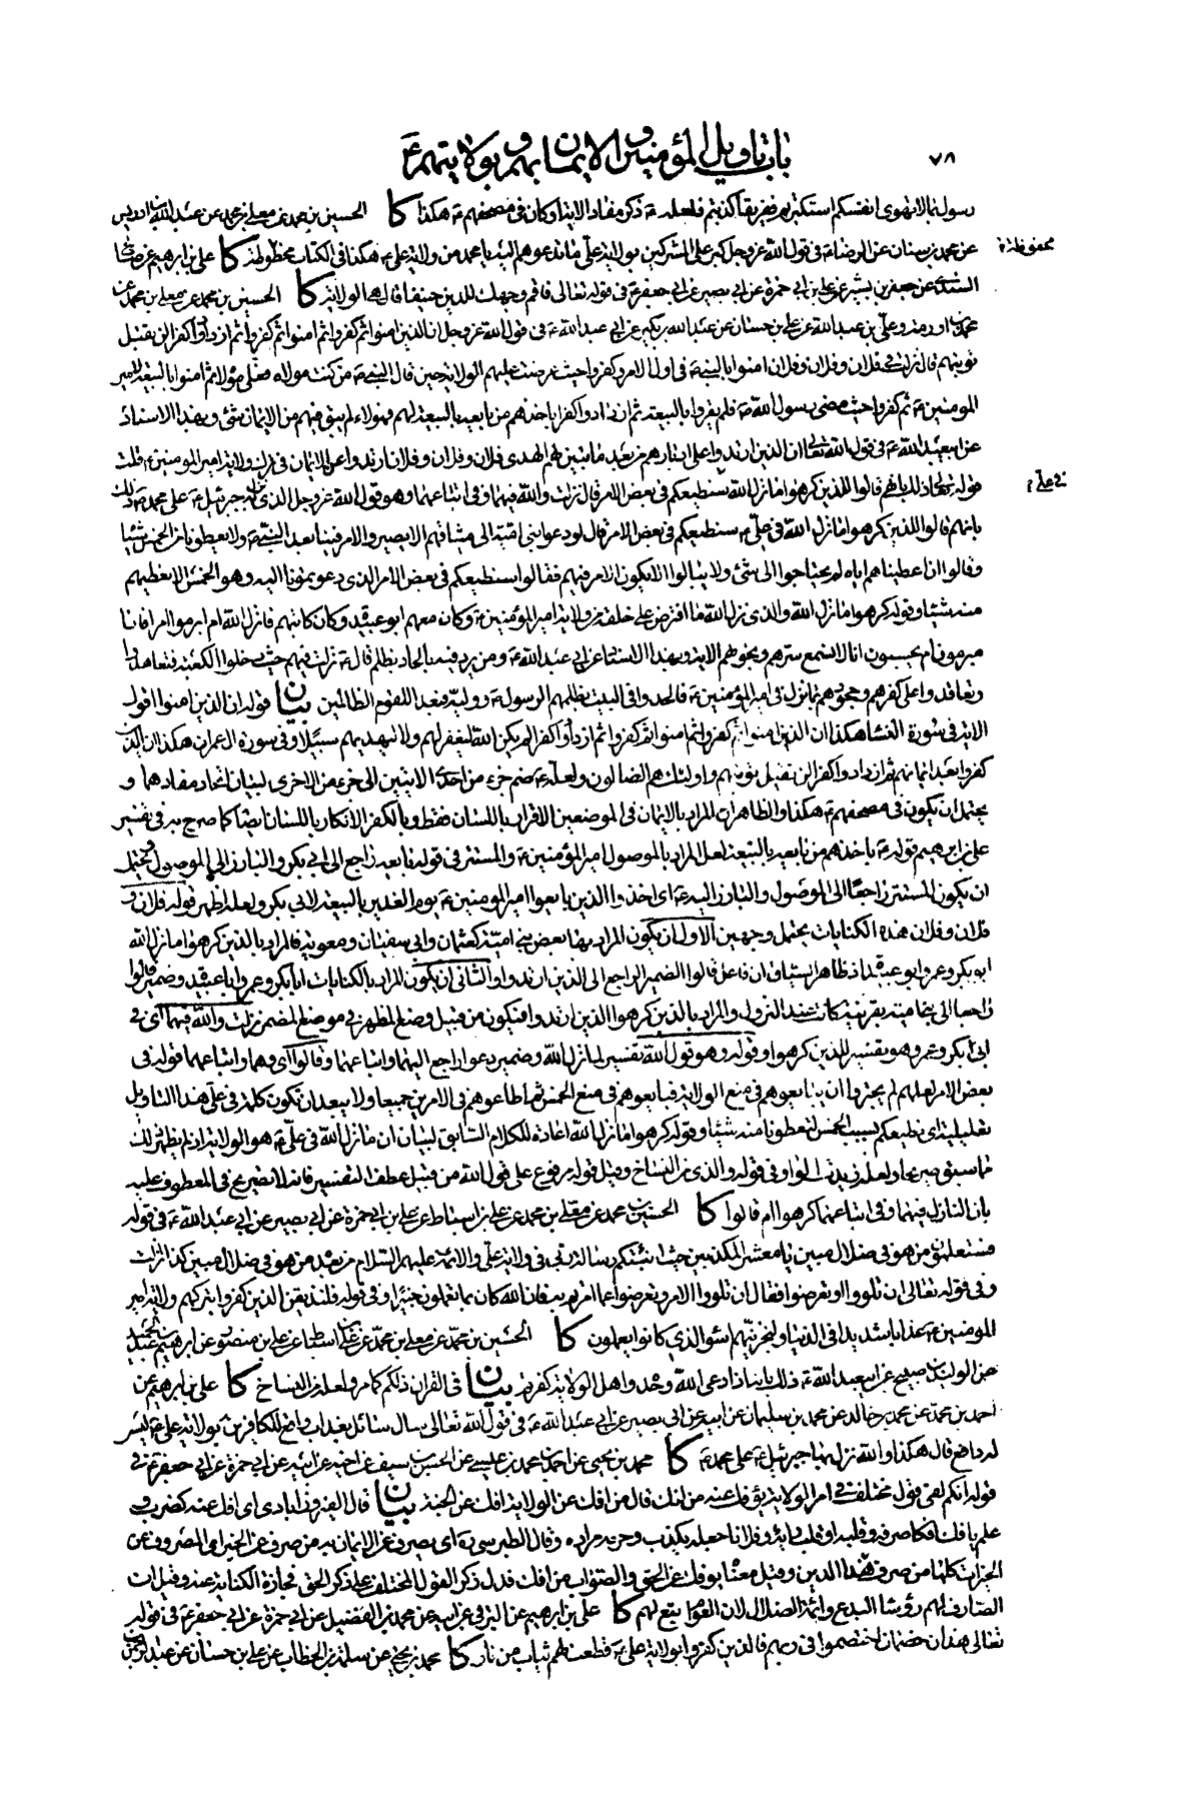 ٧٨
باب تأويل المؤمنين والايمان بهم وبولايتهم ع
رسول بما لا تهوى انفسكم استكبرتم ففريقا كذبتم فلعله ع ذكر مفاد الاية او كان فى مصحفهم ع هكذا كا الحسين بن محمد عن معلى بن محمد عن عبد الله بن ادريس
عن محمد بن سنان عن الرضا ع فى قول الله عز وجل كبر على المشركين بولاية علي ما تدعوهم اليه يا محمد من ولاية على ع هكذا فى الكتاب مخطوطة كا على بن ابرهيم عن صالح بن
السندى عن جعفر بن بشير عن على بن ابى حمزة عن ابى بصير عن ابى جعفر ع فى قوله تعالى فاقم وجهك للدين حنيفا قال هى الولاية كا الحسين بن محمد عن معلى بن محمد عن
محمد بن اورمة وعلى بن عبد الله عن على بن حسان عن عبد الله بن كثير عن ابى عبد الله ع فى قول الله عز وجل ان الذين امنوا ثم كفروا ثم امنوا ثم كفروا ثم ازدادوا كفرا لن تقبل
توبتهم قال نزلت فى فلان وفلان وفلان امنوا بالنبى ص فى اول الامر وكفروا حيث عرضت عليهم الولاية حين قال النبى ص من كنت مولاه فعلى مولاه ثم امنوا بالبيعة لامير
المؤمنين ع ثم كفروا حيث مضى رسول الله ص فلم يقروا بالبيعة ثم ازدادوا كفرا باخذهم من بايعه بالبيعة لهم فهؤلاء لم يبق فيهم من الايمان شئ وبهذا الاسناد
عن ابيعبد الله ع فى قول الله تعالى ان الذين ارتدوا على ادبارهم من بعد ما تبين لهم الهدى فلان وفلان وفلان ارتدوا عن الايمان فى ترك ولاية امير المؤمنين ع قلت
قوله تعالى ذلك بانهم قالوا للذين كرهوا ما نزل الله سنطيعكم فى بعض الامر قال نزلت والله فيهما وفى اتباعهما وهو قول الله عز وجل الذى نزل به جبرئيل ع على محمد ص ذلك
بانهم قالوا للذين كرهوا ما نزل الله فى على ع سنطيعكم فى بعض الامر قال دعوا بنى امية الى ميثاقهم الا يصيروا الامر فينا بعد النبى ص ولا يعطونا من الخمس شيئا
وقالوا ان اعطيناهم اياه لم يحتاجوا الى شئ ولا يبالوا الا يكون الامر فيهم فقالوا سنطيعكم فى بعض الامر الذى دعوتمونا اليه وهو الخمس الا نعطيهم
منه شيئا وقوله كرهوا ما نزل الله والذى نزل الله ما افترض على خلقه من ولاية امير المؤمنين ع وكان معهم ابو عبيدة وكان كاتبهم فانزل الله ام ابرموا امرا فانا
مبرمون ام يحسبون انا لا نسمع سرهم ونجويهم الاية وبهذا الاسناد عن ابى عبد الله ع ومن يرد فيه بالحاد بظلم قال ع نزلت فيهم حيث دخلوا الكعبة فتعاهدوا
وتعاقدوا على كفرهم وجحودهم بما نزل فى امير المؤمنين ع فالحدوا فى البيت بظلمهم الرسول ص ووليه فبعدا للقوم الظالمين بيان قوله ان الذين امنوا اقول
الاية فى سورة النساء هكذا ان الذين امنوا ثم كفروا ثم امنوا ثم كفروا ثم ازدادوا كفرا لم يكن الله ليغفر لهم ولا ليهديهم سبيلا وفى سورة ال عمران هكذا ان الذين
كفروا بعد ايمانهم ثم ازدادوا كفرا لن تقبل توبتهم واولئك هم الضالون ولعله ع ضم جزء من احدى الايتين الى جزء من الاخرى لبيان اتحاد مفادهما و
يحتمل ان يكون فى مصحفهم ع هكذا والظاهر ان المراد بالايمان فى الموضعين الاقرار باللسان فقط وبالكفر الانكار باللسان ايضا كما صرح به فى تفسير
على بن ابرهيم قوله ع باخذهم من بايعه بالبيعة لعل المراد بالموصول امير المؤمنين ع والمستتر فى قوله بايعه راجع الى ابى بكر والبارز الى الموصول ويحتمل
ان يكون المستتر راجعا الى الموصول والبارز اليه ع اى اخذوا الذين بايعوا امير المؤمنين ع يوم الغدير بالبيعة لابى بكر ولعله اظهر قوله فلان و
فلان وفلان هذه الكنايات يحتمل وجهين الاول ان يكون المراد بها بعض بنى امية كعثمان وابى سفيان ومعوية فالمراد بالذين كرهوا ما نزل الله
ابو بكر وعمر وابو عبيدة اذ ظاهر السياق ان فاعل قالوا الضمير الراجع الى الذين ارتدوا والثانى ان يكون المراد بالكنايات ابا بكر وعمر وابا عبيدة وضمير قالوا
راجعا الى بنى امية بقرينة كانت عند النزول والمراد بالذين كرهوا الذين ارتدوا فيكون من قبيل وضع المظهر فى موضع المضمر نزلت والله فيهما اى فى
ابى بكر وعمر وهو تفسير للذين كرهوا وقوله وهو قول الله تفسير لما نزل الله وضمير دعوا راجع اليهما واتباعهما وقالوا اى هما واتباعهما قوله فى
بعض الامر لعلهم لم يجترؤا ان يبايعوهم فى منع الولاية فبايعوهم فى منع الخمس ثم اطاعوهم فى الامرين جميعا ولا يبعد ان تكون كلمة فى على هذا التاويل
تعليلية اى نطيعكم بسبب الخمس لتعطونا منه شيئا وقوله كرهوا ما نزل الله اعادة للكلام السابق لبيان ان ما نزل الله فى على ع هو الولاية اذ لم يظهر ذلك
مما سبق صريحا ولعله زيدت الواو فى قوله والذى من النساخ وقيل قوله مرفوع على قول الله من قبيل عطف التفسير فانه لا تصريح فى المعطوف عليه
بان النازل فيهما وفى اتباعهما كرهوا ام قالوا كا الحسين بن محمد عن معلى بن محمد عن على بن اسباط عن على بن ابى حمزة عن ابى بصير عن ابى عبد الله ع فى قوله
فستعلمون من هو فى ضلال مبين يا معشر المكذبين حيث انبئتكم رسالة ربى فى ولاية على والائمة عليهم السلام من بعده من هو فى ضلال مبين كذا انزلت
وفى قوله تعالى ان تلووا او تعرضوا فقال ان تلووا الامر وتعرضوا عما امرتم به فان الله كان بما تعملون خبيرا وفى قوله فلنذيقن الذين كفروا بتركهم ولاية امير
المؤمنين ع عذابا شديدا فى الدنيا ولنجزينهم اسوأ الذى كانوا يعملون كا الحسين بن محمد عن معلى بن محمد عن على بن اسباط عن على بن منصور عن ابرهيم بن عبد الحميد
عن الوليد بن صبيح عن ابيعبد الله ع ذلك بانه اذا دعى الله وحده واهل الولاية كفرتم بيان فى القران ذلكم كما مر ولعله من النساخ كا على بن ابرهيم عن
احمد بن محمد عن محمد بن خالد عن محمد بن سليمان عن ابيه عن ابى بصير عن ابى عبد الله ع فى قول الله تعالى سال سائل بعذاب واقع للكافرين بولاية على ع ليس
له دافع قال هكذا والله نزل بها جبرئيل ع على محمد ص كا محمد بن يحيى عن احمد بن محمد بن عيسى عن الحسين بن سيف عن اخيه عن ابيه عن ابى حمزة عن ابى جعفر ع فى
قوله انكم لفى قول مختلف فى امر الولاية يؤفك عنه من افك قال من افك عن الولاية افك عن الجنة بيان قال الفيروزابادى افك عنه كضرب و
علم يافك افكا صرفه وقلبه او قلب رايه وفلانا جعله يكذب وحرمه مراده وقال الطبرسى ره اى يصرف عن الايمان به من صرف عن الخير اى المصروف عن
الخيرات كلها من صرف عن هذا الدين وقيل معناه يوفك عن الحق والصواب من افك فدل ذكر القول المختلف على ذكر الحق فجازت الكناية عنه وقيل ان
الصارف لهم رؤساء البدع وائمة الضلال لان العوام تبع لهم كا على بن ابرهيم عن البرقى عن ابيه عن محمد بن الفضيل عن ابى حمزة عن ابى جعفر ع فى قوله
تعالى هذان خصمان اختصموا فى ربهم فالذين كفروا بولاية على ع قطعت لهم ثياب من نار كا محمد بن يحيى عن سلمة بن الخطاب عن على بن حسان عن عبد الرحمن